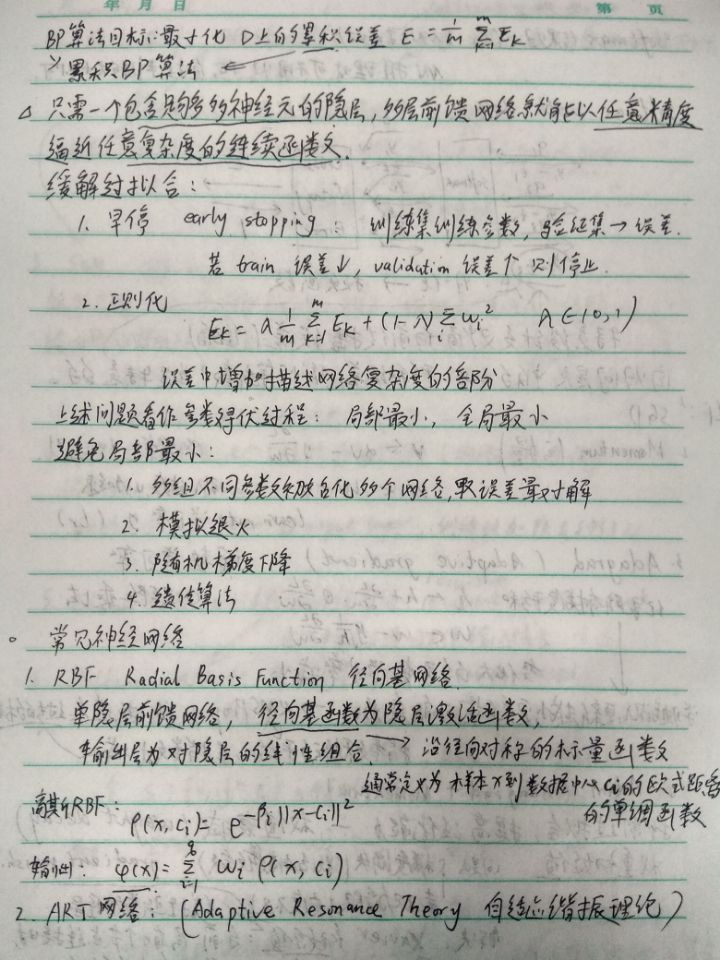 年 月 日 第 页
BP算法目标:最小化 D上的累积误差 E = 1/m Σ_{k=1}^{m} E_k
→累积BP算法
△ 只需一个包含足够多神经元的隐层,多层前馈网络就能以任意精度
逼近任意复杂度的连续函数.
缓解过拟合:
1. 早停 early stopping: 训练集训练参数, 验证集→误差.
若 train 误差↓, validation 误差↑ 则停止.
2. 正则化
E_k = λ 1/m Σ_{k=1}^{m} E_k + (1-λ) Σ_i w_i² λ∈(0,1)
误差中增加描述网络复杂度的部份
上述问题看作参数寻优过程: 局部最小, 全局最小
避免局部最小:
1. 多组不同参数初始化多个网络,取误差最小解
2. 模拟退火
3. 随机梯度下降
4. 遗传算法
。 常见神经网络
1. RBF Radial Basis Function 径向基网络.
单隐层前馈网络, 径向基函数为隐层激活函数,
输出层为对隐层的线性组合. → 沿径向对称的标量函数
通常定义为样本x到数据中心ci的欧式距离
的单调函数
高斯RBF: ρ(x, ci) = e^{-βi||x-ci||²}
输出: φ(x) = Σ_{i=1}^{q} wi ρ(x, ci)
2. ART 网络: (Adaptive Resonance Theory 自适应谐振理论)